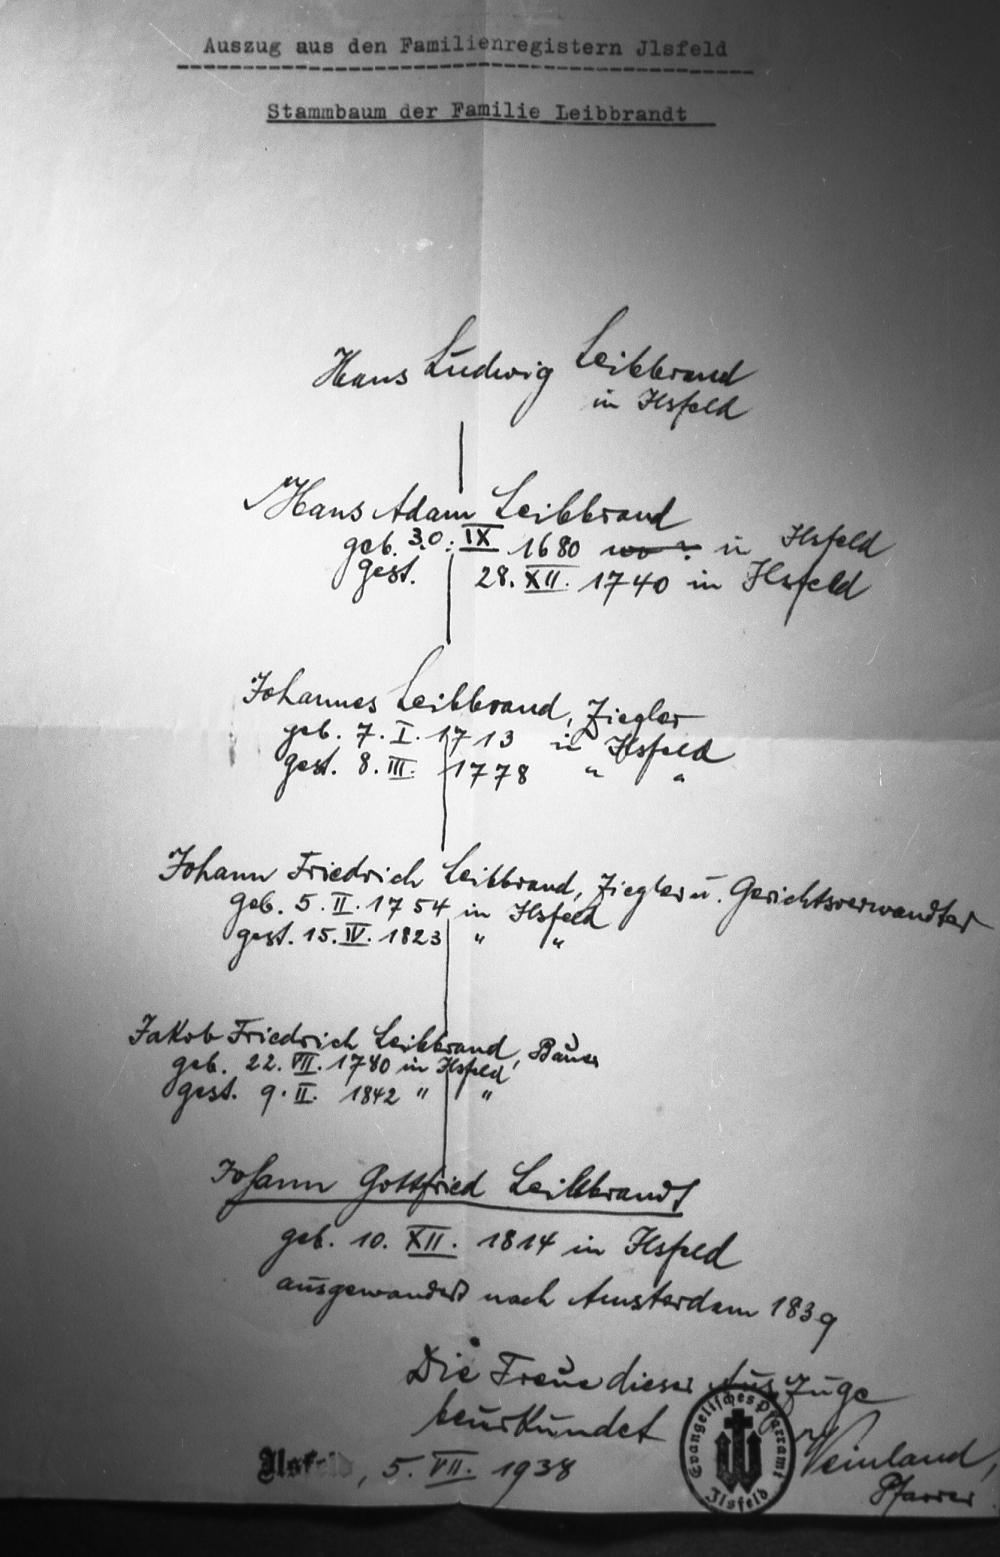 Auszug aus den Familienregistern Jlsfeld
Stammbaum der Familie Leibbrandt
Hans Ludwig Leibbrand
in Ilsfeld
Hans Adam Leibbrand
geb. 30. IX 1680 wo? in Ilsfeld
gest. 28. XII. 1740 in Ilsfeld
Johannes Leibbrand, Ziegler
geb. 7. I. 1713 in Ilsfeld
gest. 8. III. 1778 " "
Johann Friedrich Leibbrand, Ziegler u. Gerichtsverwandter
geb. 5. II. 1754 in Ilsfeld
gest. 15. IV. 1823 " "
Jakob Friedrich Leibbrand, Bauer
geb. 22. VII. 1780 in Ilsfeld
gest. 9. II. 1842 " "
Johann Gottfried Leibbrandt
geb. 10. XII. 1814 in Ilsfeld
ausgewandert nach Amsterdam 1839
Die Treue dieser Auszüge
beurkundet
Evangelisches Pfarramt
Ilsfeld
Weinland,
Pfarrer
Ilsfeld, 5. VII. 1938